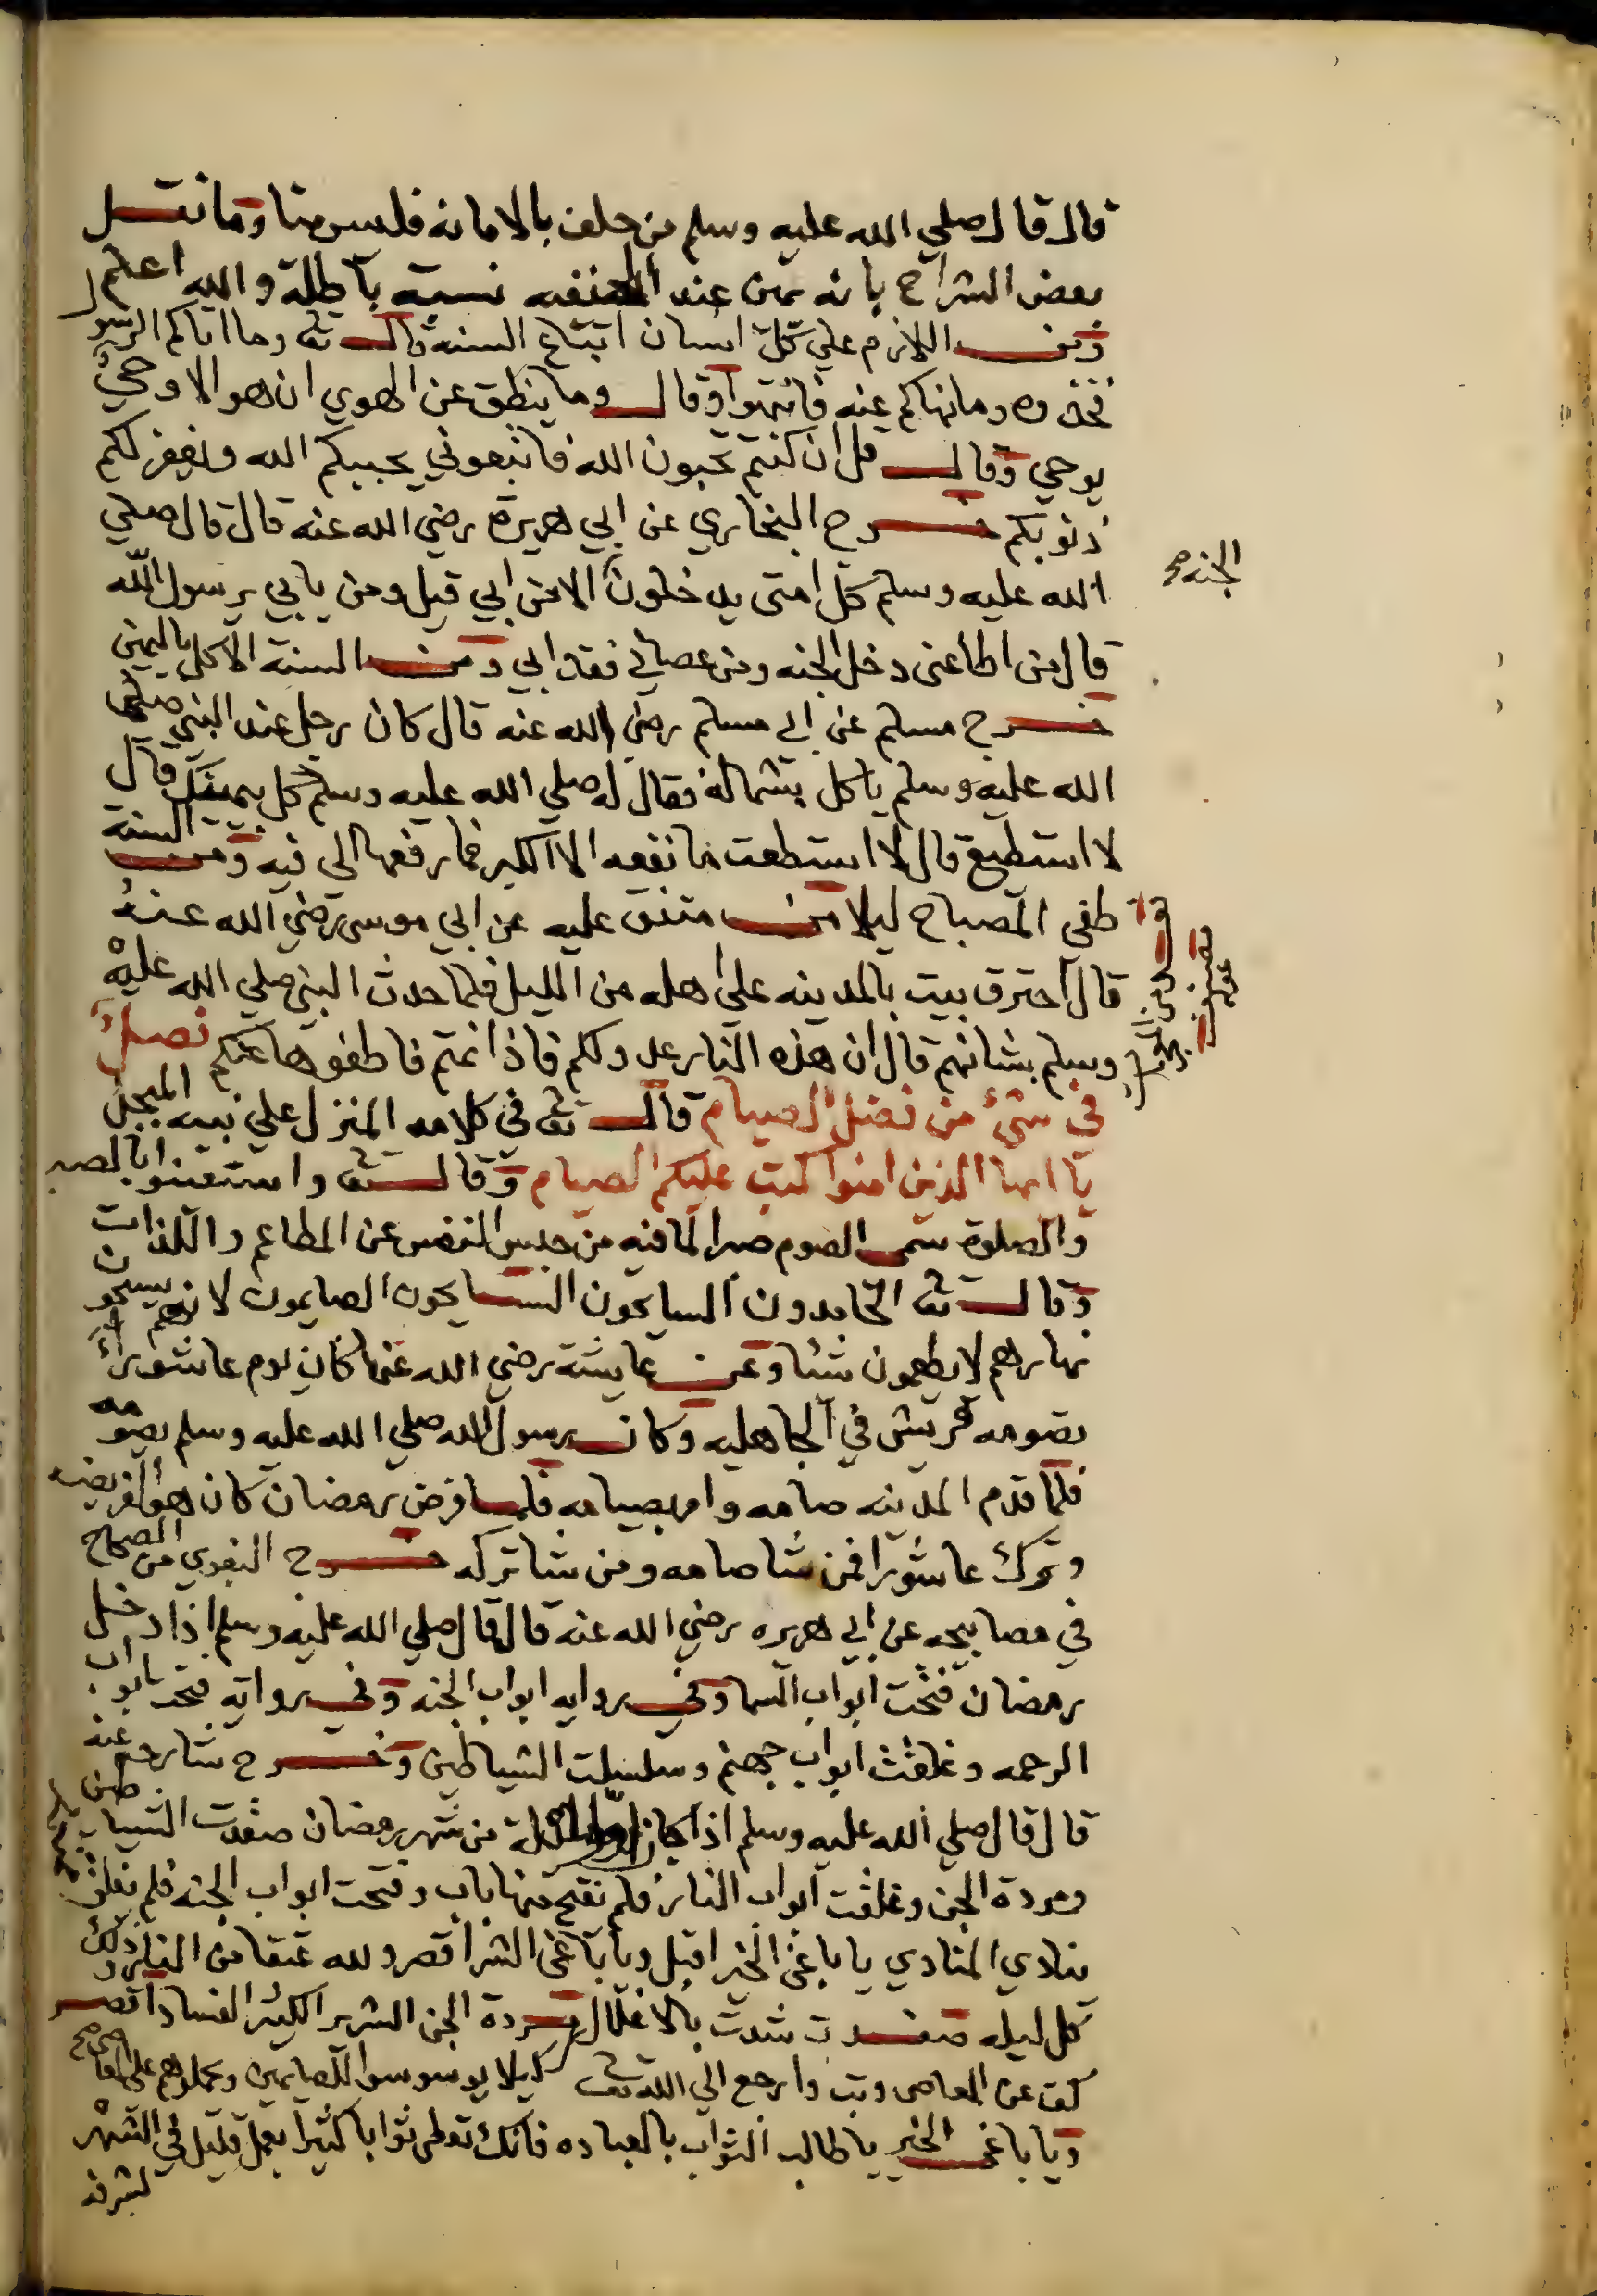 قال قال صلي الله عليه وسلم من حلف بالامانه فليس منا وما نقل
بعض الشراح بانه يمين عند الحنفيه نسبة باطلة والله اعلم
ومن اللازم علي كل انسان اتباع السنه قال تعالى وما اتاكم الرسول
فخذوه وما نهاكم عنه فانتهوا وقال وما ينطق عن الهوي ان هو الا وحيٌ
يوحي وقال قل ان كنتم تحبون الله فاتبعوني يحببكم الله ويغفر لكم
ذنوبكم خرج البخاري عن ابي هريرة رضي الله عنه قال قال صلي
الله عليه وسلم كل امتى يدخلون الا من ابي قيل ومن يابي يرسول الله
الجنه صح
قال من اطاعنى دخل الجنه ومن عصاني فقد ابي ومن السنة الاكل باليمين
خرج مسلم عن ابي مسلم رضي الله عنه قال كان رجل عند النبي صلى
الله عليه وسلم ياكل بشماله فقال له صلي الله عليه وسلم كل بيمينك قال
لا استطيع قال لا استطعت ما نفعه الا الكبر فما رفعها الي فيه ومن السنة
طفي المصباح ليلا من متفق عليه عن ابي موسى رضي الله عنهُ
قال احترق بيت بالمدينه على اهله من الليل فلما حدث النبي صلي الله عليْه
وسلم بشانهم قال ان هذه النار عدو لكم فاذا نمتم فاطفوها عنكم فصل
في شئ من فضل الصيام قال تعالى في كلامه المنزل علي نبيه المبجل
يا ايها الذين امنوا كتب عليكم الصيام وقال تعالى واستعينوا بالصبر
والصلوة سمى الصوم صبرا لما فيه من حبس النفس عن المطاعم واللذات
وقال تعالى الحامدون السايحون السايحون الصايمون لانهم يسيحون
نهارهم لا يطعمون شئا وعن عايشة رضي الله عنها كان يوم عاشوراء
تصومه قريش في الجاهليه وكان رسول الله صلي الله عليه وسلم يصومه
فلما قدم المدينه صامه وامر بصيامه فلما فرض رمضان كان هو الفريضه
وترك عاشورا فمن شا صامه ومن شا تركه خرج البغوي من الصحاح
في مصابيحه عن ابي هريره رضي الله عنه قال قال صلي الله عليه وسلم اذا دخل
رمضان فتحت ابواب السما وفي روايه ابواب الجنه وفي روايه فتحت ابواب
الرحمه وغلقت ابواب جهنم وسلسلت الشياطين وخرج شارحه عنه
قال قال صلي الله عليه وسلم اذا كان اول ليلة من شهر رمضان صفدت الشياطين
ومردة الجن وغلقت ابواب النار فلم تفتح منها باب وفتحت ابواب الجنه فلم يغلق
ينادي المنادي يا باغى الخير اقبل ويا باغى الشر اقصر ولله عتقا من النار وذلك
كل ليله صفدت شدت بالاغلال مردة الجن الشرير الكثير الفساد اقصر
كف عن المعاصى وتب وارجع الي الله تعالى كيلا يوسوسوا للصايمين ويحملوهم على المعاصي صح
ويا باغى الخير يا طالب الثواب بالعباده فانك تعطى ثوابا كثيرا بعمل قليل في الشهر
لشرفه